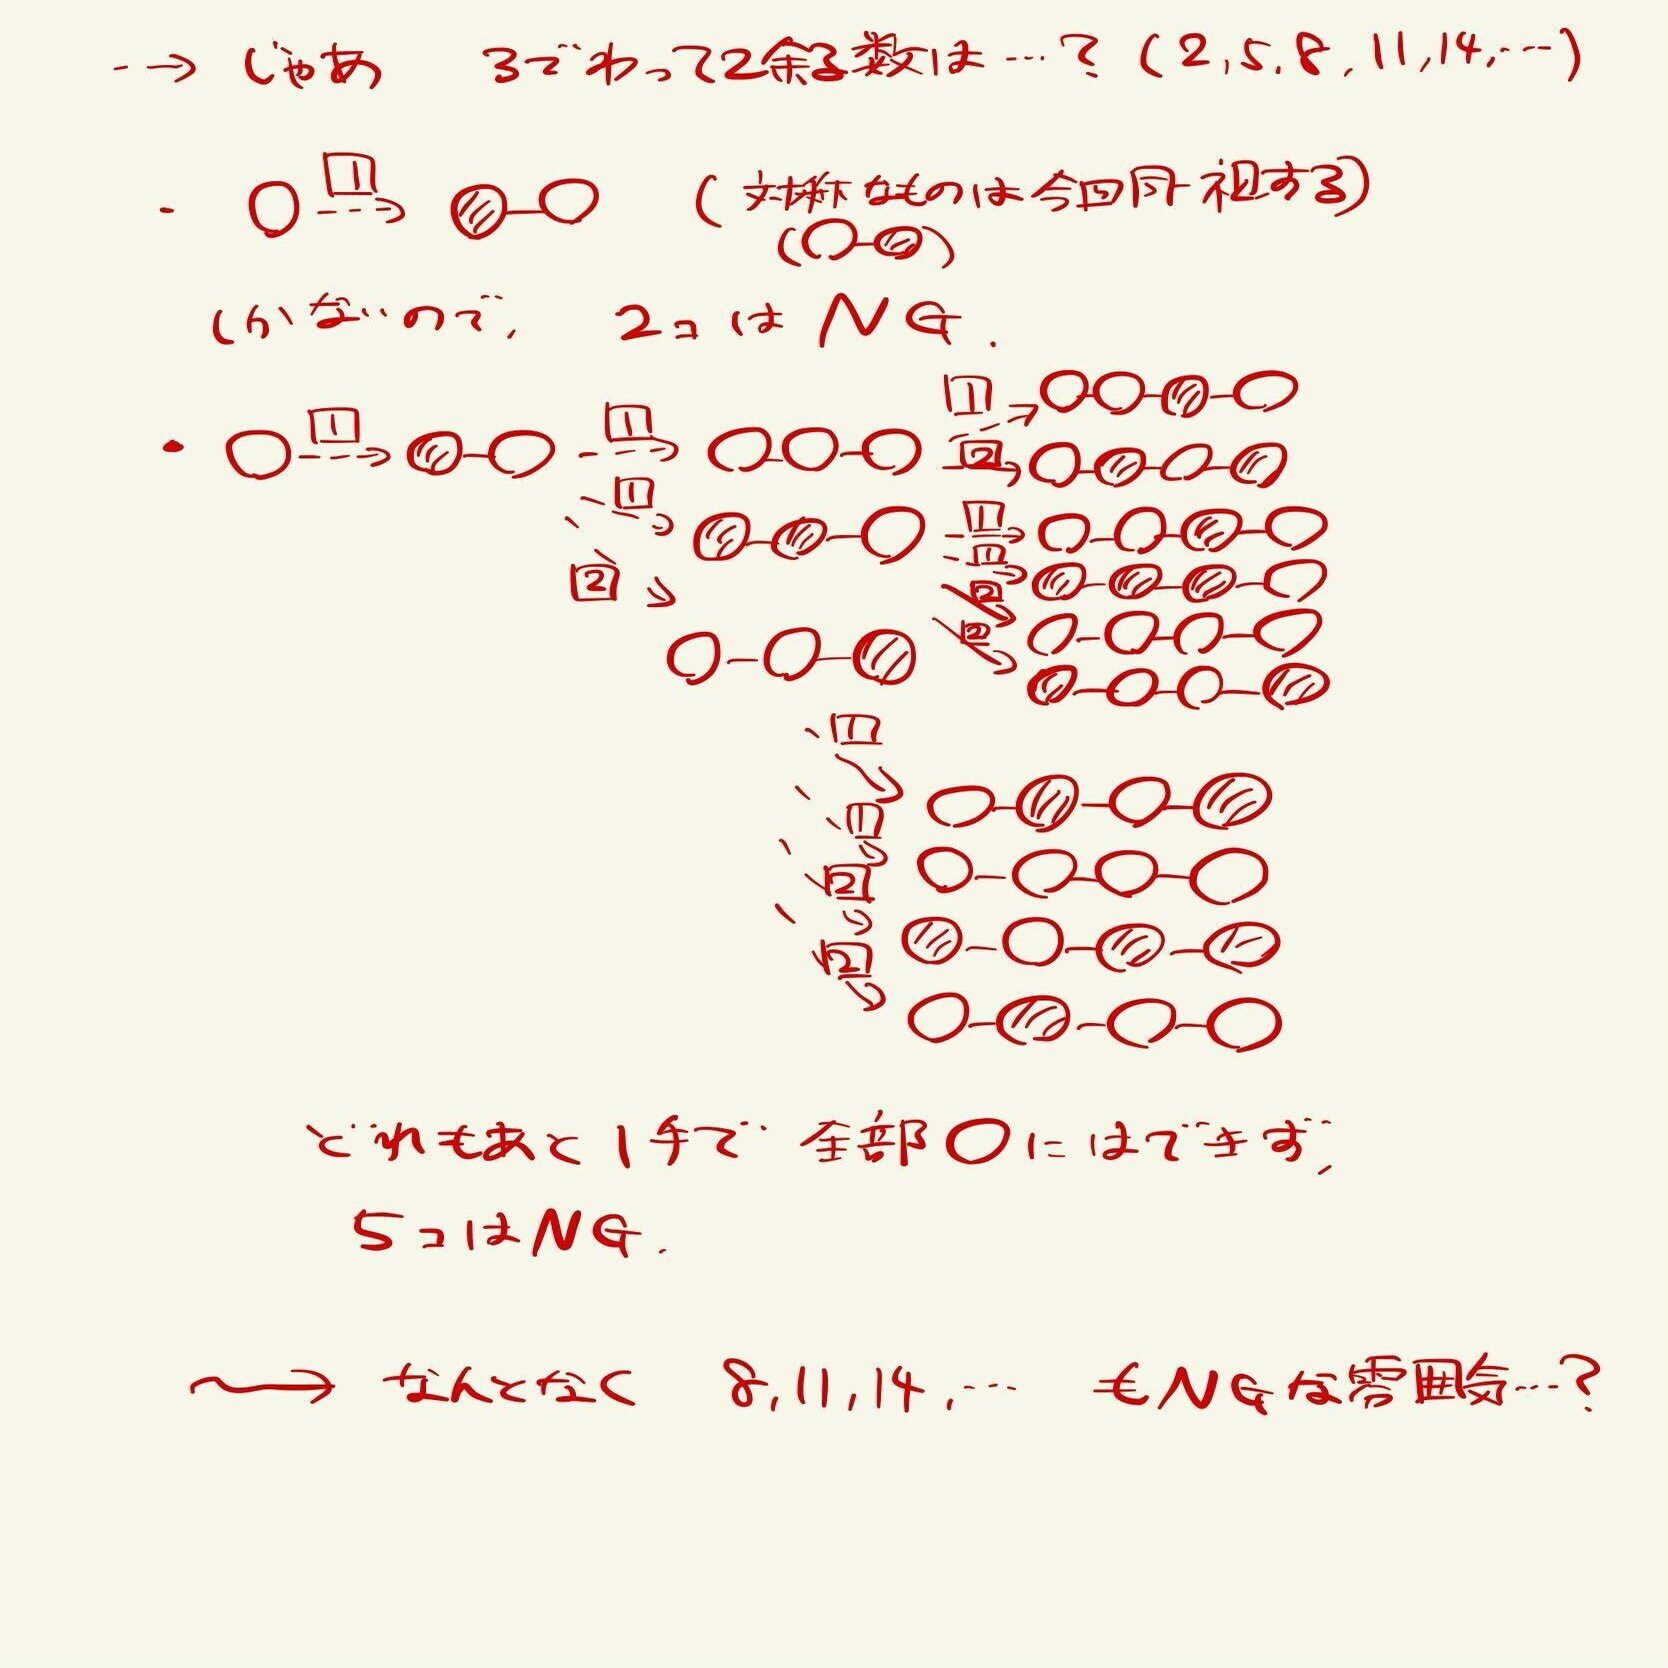 --→ じゃあ 3でわって2余る数は…? (2,5,8,11,14,…)
・ 1 (対称なものは今回同一視する)
しかないので、 2コはNG.
・ 1 1 1
2
1 1
1
2 2
2
1
1
2
2
どれもあと1手で 全部〇にはできず、
5コはNG.
〜→ なんとなく 8,11,14,… もNGな雰囲気…?